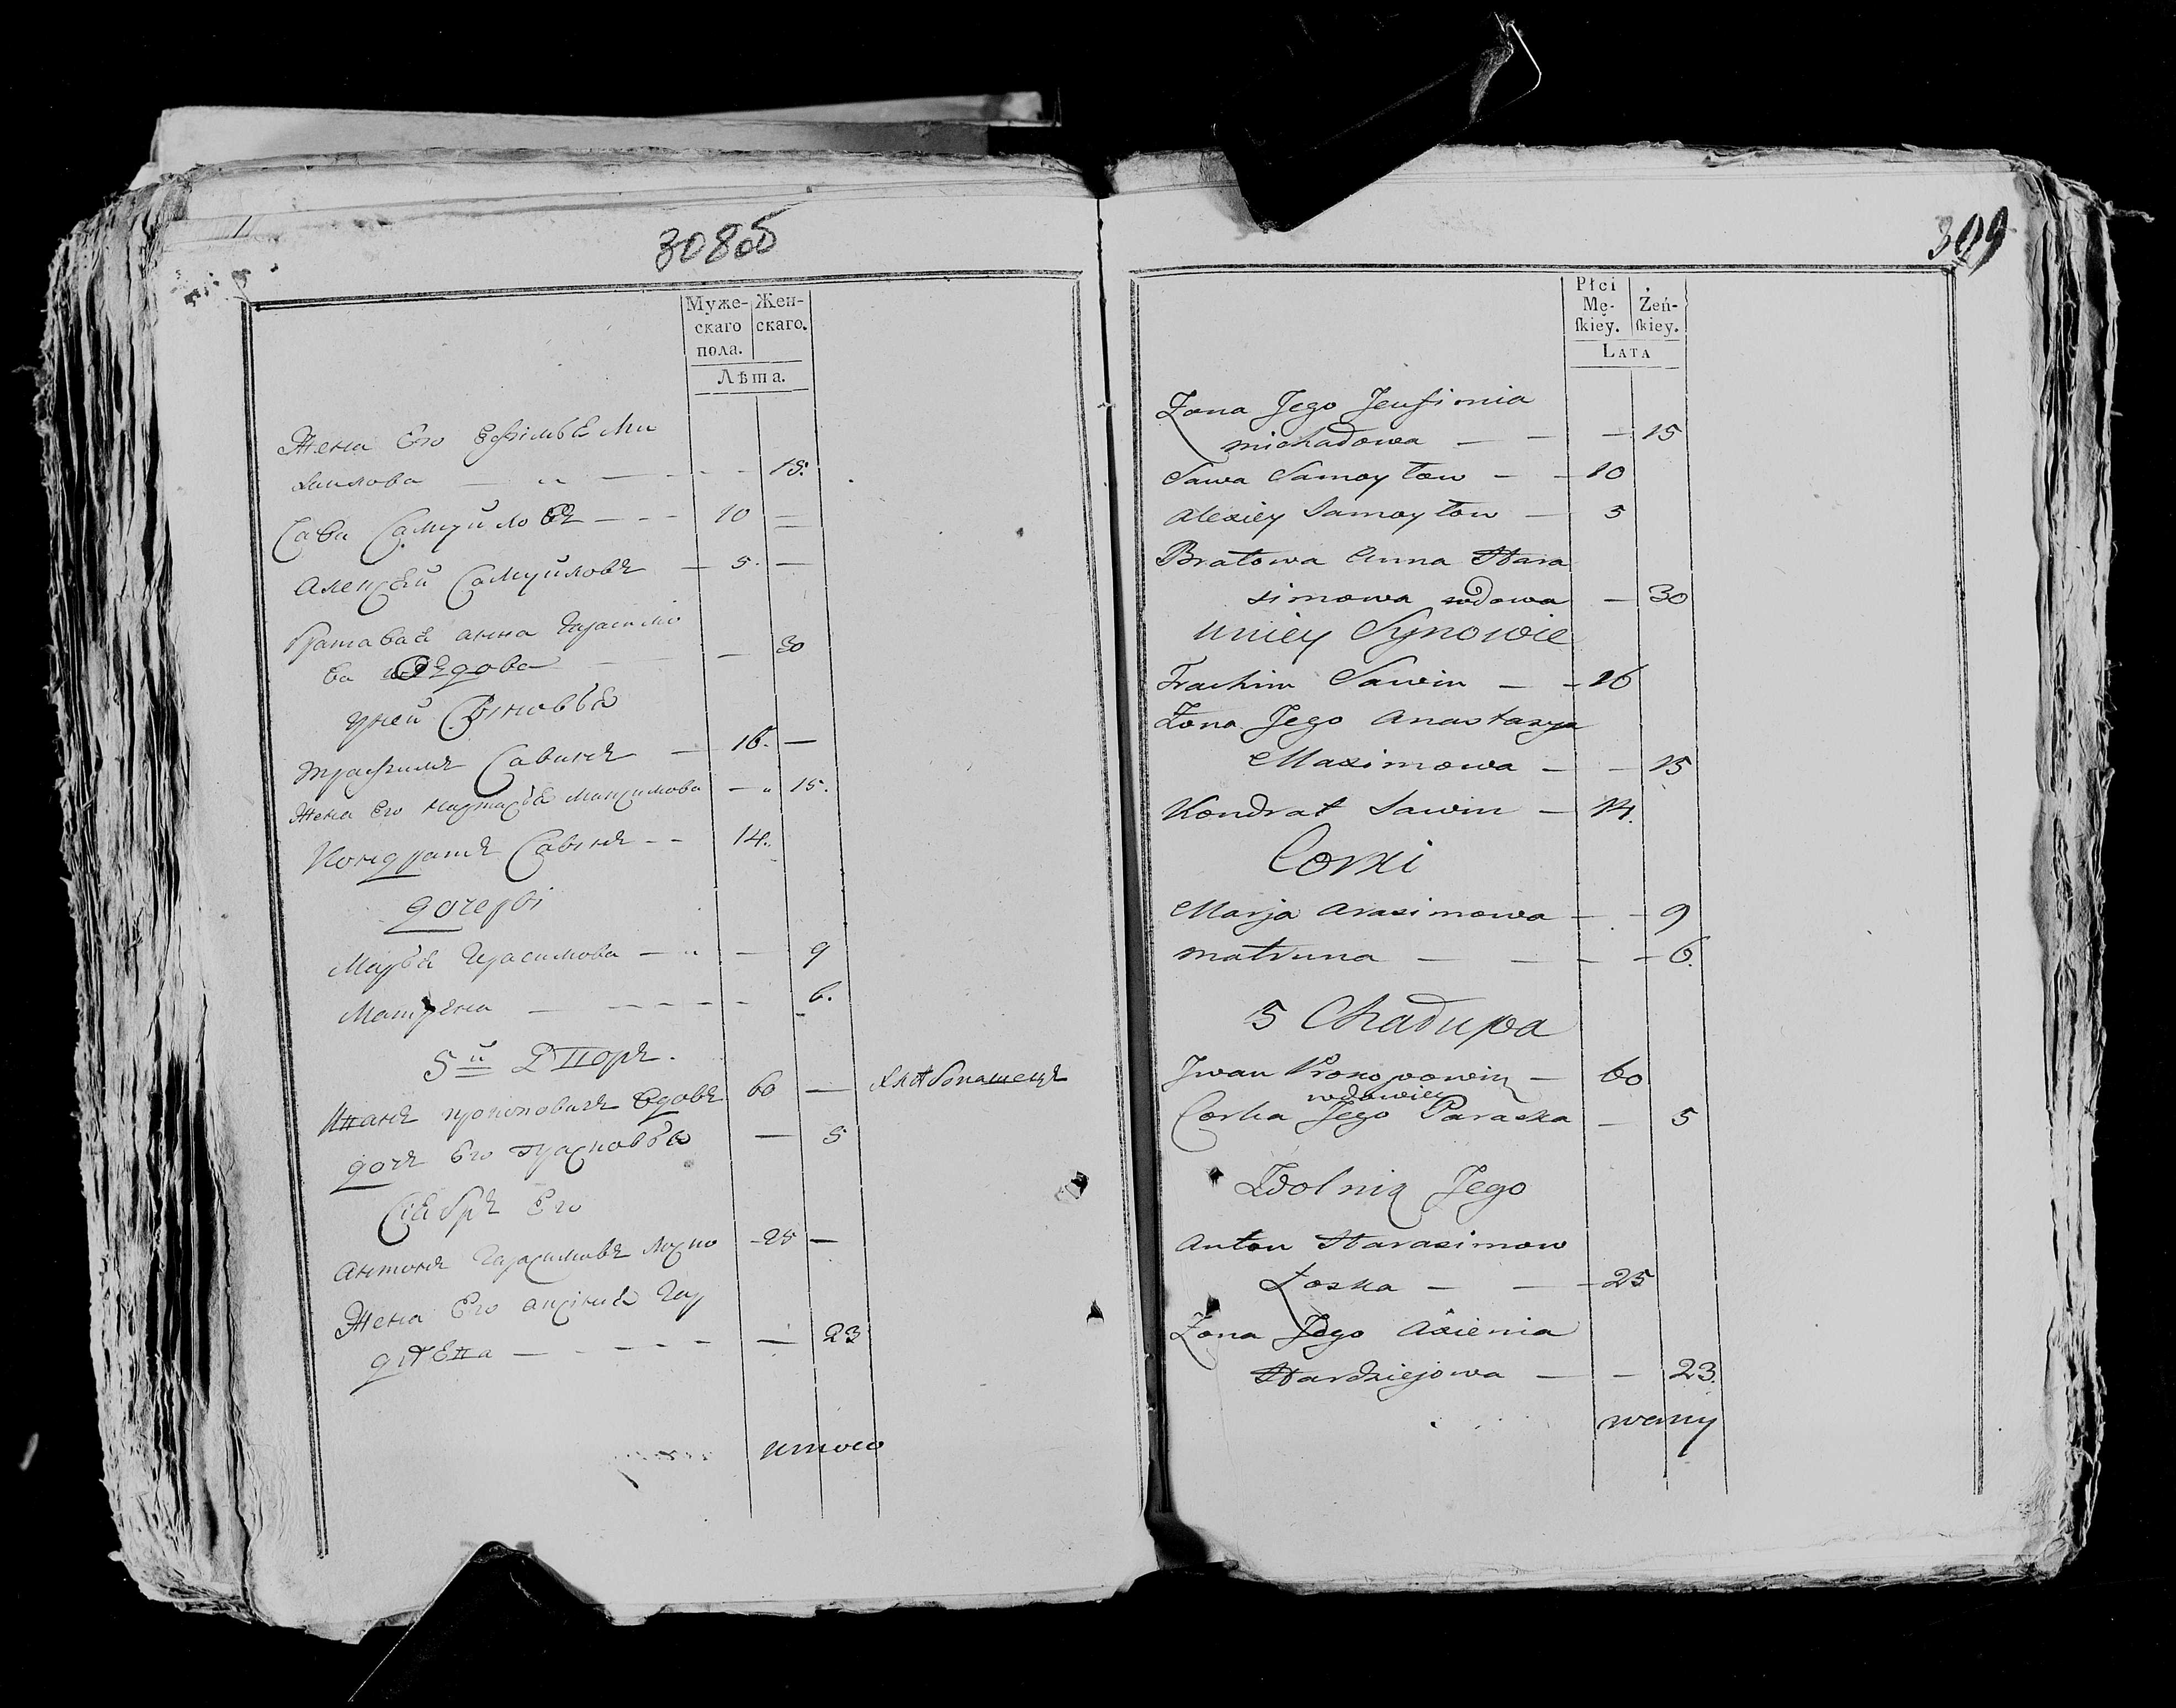 308об
Муже-
скаго
пола.
Жен-
скаго.
Лѣта.
Жена Его Ефимья Ми
хаилова — 15.
Сава Самуиловъ — 10 —
Алексѣй Самуиловъ — 5. —
братавая анна Гарасимо
ва вдова — 30
уней Сыновья
Трахимъ Савинъ — 16. —
Жена Его настасья Максимова — 15.
Кондратъ Савинъ — 14.
дочери
Марья Гарасимова — 9
Матрена — 6.
5й Двор.
Иванъ прокоповичъ вдовъ 60 —
дочь Его Прасковья — 5
Сябръ Его
Антонъ Гарасимовъ Лоско 25 —
Жена Его аксинья Гар
дѣева — 23
итого
309
Płci
Mę-
ſkiey.
Żeń-
ſkiey.
LATA
Zona Jego Jeufimia
michadowa — 15
Sawa Samoyłow — 10
Alexiey Samoyłow — 5
Bratowa Anna Hara
simowa wdowa — 30
uniey Synowie
Trachim Sawin — 16
Zona Jego Anastazya
Maximowa — 15
Kondrat Sawin — 14.
Corki
Marja Arasimowa — 9
matruna — 6.
5 Chadupa
Jwan Prokopowicz — 60
wdowiec
Corka Jego Paraska — 5
Jego
Anton Harasimow
Łoska — 25
Zona Jego Axienia
Hardziejowa — 23.